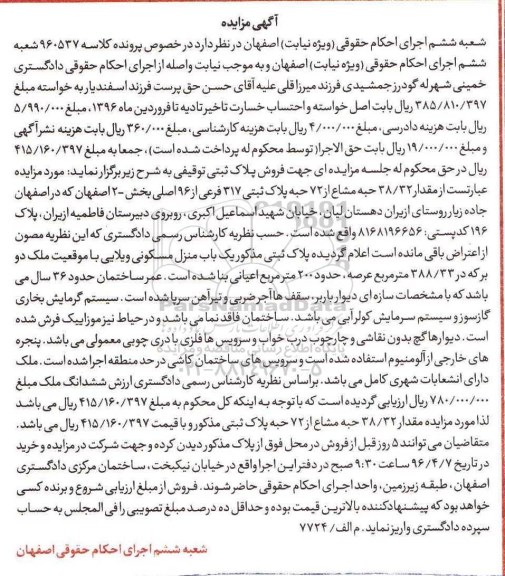 آگهی مزایده
شعبه ششم اجرای احکام حقوقی (ویژه نیابت) اصفهان در نظر دارد در خصوص پرونده کلاسه ۹۶۰۵۳۷ شعبه
ششم اجرای احکام حقوقی (ویژه نیابت) اصفهان و به موجب نیابت واصله از اجرای احکام حقوقی دادگستری
خمینی شهر له گودرز جمشیدی فرزند میرزا قلی علیه آقای حسن حق پرست فرزند اسفندیار به خواسته مبلغ
۳۸۵/۸۱۰/۳۹۷ ریال بابت اصل خواسته و احتساب خسارت تاخیر تادیه تا فروردین ماه ۱۳۹۶، مبلغ ۵/۹۹۰/۰۰۰
ریال بابت هزینه دادرسی، مبلغ ۴/۰۰۰/۰۰۰ ریال بابت هزینه کارشناسی، مبلغ ۳۶۰/۰۰۰ ریال بابت هزینه نشر آگهی
و مبلغ ۱۹/۰۰۰/۰۰۰ ریال بابت حق الاجرا (توسط محکوم له پرداخت شده است)، جمعا به مبلغ ۴۱۵/۱۶۰/۳۹۷
ریال در حق محکوم له جلسه مزایده ای جهت فروش پلاک ثبتی توقیفی به شرح زیر برگزار نماید: مورد مزایده
عبارتست از مقدار ۳۸/۳۲ حبه مشاع از ۷۲ حبه پلاک ثبتی ۳۱۷ فرعی از ۹۶ اصلی بخش -۲ اصفهان که در اصفهان
جاده زیار روستای ازیران دهستان لیان، خیابان شهید اسماعیل اکبری، روبروی دبیرستان فاطمیه ازیران، پلاک
۱۹۶ کدپستی: ۸۱۶۸۱۹۶۶۵۶ واقع شده است. حسب نظریه کارشناس رسمی دادگستری که این نظریه مصون
از اعتراض باقی مانده است اعلام گردیده پلاک ثبتی مذکور یک باب منزل مسکونی ویلایی با موقعیت ملک دو
بر که در ۳۸۸/۳۳ مترمربع عرصه، حدود ۲۰۰ مترمربع اعیانی بنا شده است. عمر ساختمان حدود ۳۶ سال می
باشد که با مشخصات سازه ای دیوار باربر، سقف ها آجر ضربی و تیرآهن سرپا شده است. سیستم گرمایش بخاری
گازسوز و سیستم سرمایش کولر آبی می باشد. ساختمان فاقد نما می باشد. و در حیاط نیز موزاییک فرش شده
است. دیوارها گچ بدون نقاشی و چارچوب درب خواب و سرویس ها فلزی با دری چوبی معمولی می باشد. پنجره
های خارجی از آلومنیوم استفاده شده است و سرویس های ساختمان کاشی در حد منطقه اجرا شده است. ملک
دارای انشعابات شهری کامل می باشد. براساس نظریه کارشناس رسمی دادگستری ارزش ششدانگ ملک مبلغ
۷۸۰/۰۰۰/۰۰۰ ریال ارزیابی گردیده است که با توجه به اینکه کل محکوم به مبلغ ۴۱۵/۱۶۰/۳۹۷ ریال می باشد
لذا مورد مزایده مقدار ۳۸/۳۲ حبه مشاع از ۷۲ حبه پلاک ثبتی مذکور و با قیمت ۴۱۵/۱۶۰/۳۹۷ ریال می باشد.
متقاضیان می توانند ۵ روز قبل از فروش در محل فوق از پلاک مذکور دیدن کرده و جهت شرکت در مزایده و خرید
در تاریخ ۹۶/۴/۷ ساعت ۹:۳۰ صبح در دفتر این اجرا واقع در خیابان نیکبخت، ساختمان مرکزی دادگستری
اصفهان، طبقه زیرزمین، واحد اجرای احکام حقوقی حاضر شوند. فروش از مبلغ ارزیابی شروع و برنده کسی
خواهد بود که پیشنهاد کننده بالاترین قیمت بوده و حداقل ده درصد مبلغ تصویبی را فی المجلس به حساب
سپرده دادگستری واریز نماید. م الف/ ۷۷۲۴
شعبه ششم اجرای احکام حقوقی اصفهان